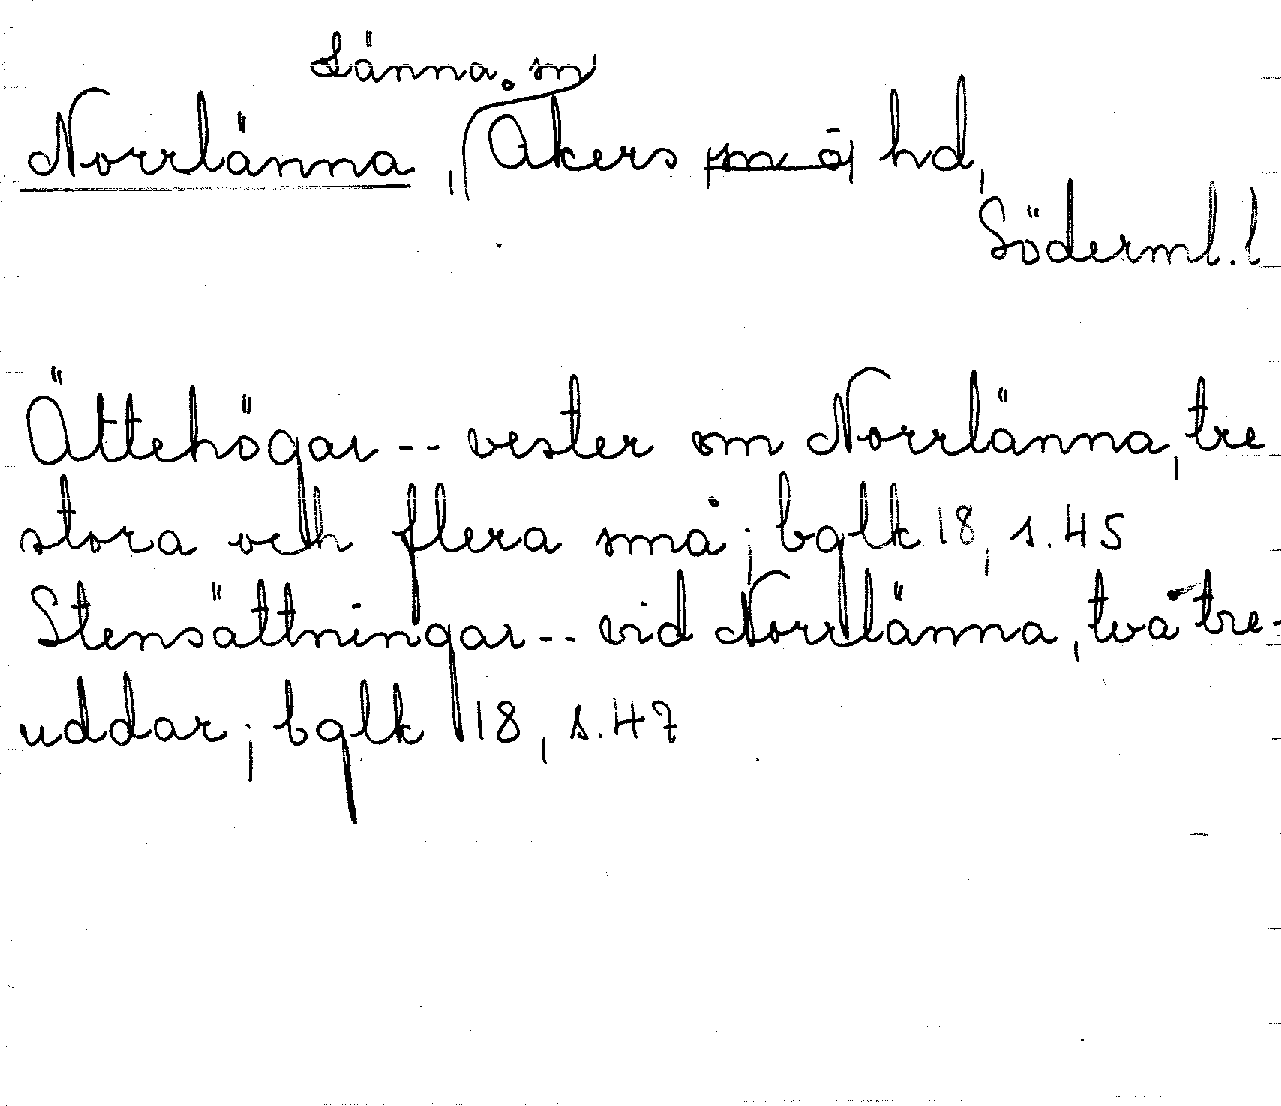 Länna. sn
Norrlänna, Åkers hd,
Söderml. l
Ättehögar -- vester om Norrlänna, tre
stora och flera små; bglk 18, s. 45
Stensättningar -- vid Norrlänna, två tre-
uddar; bglk 18, s. 47